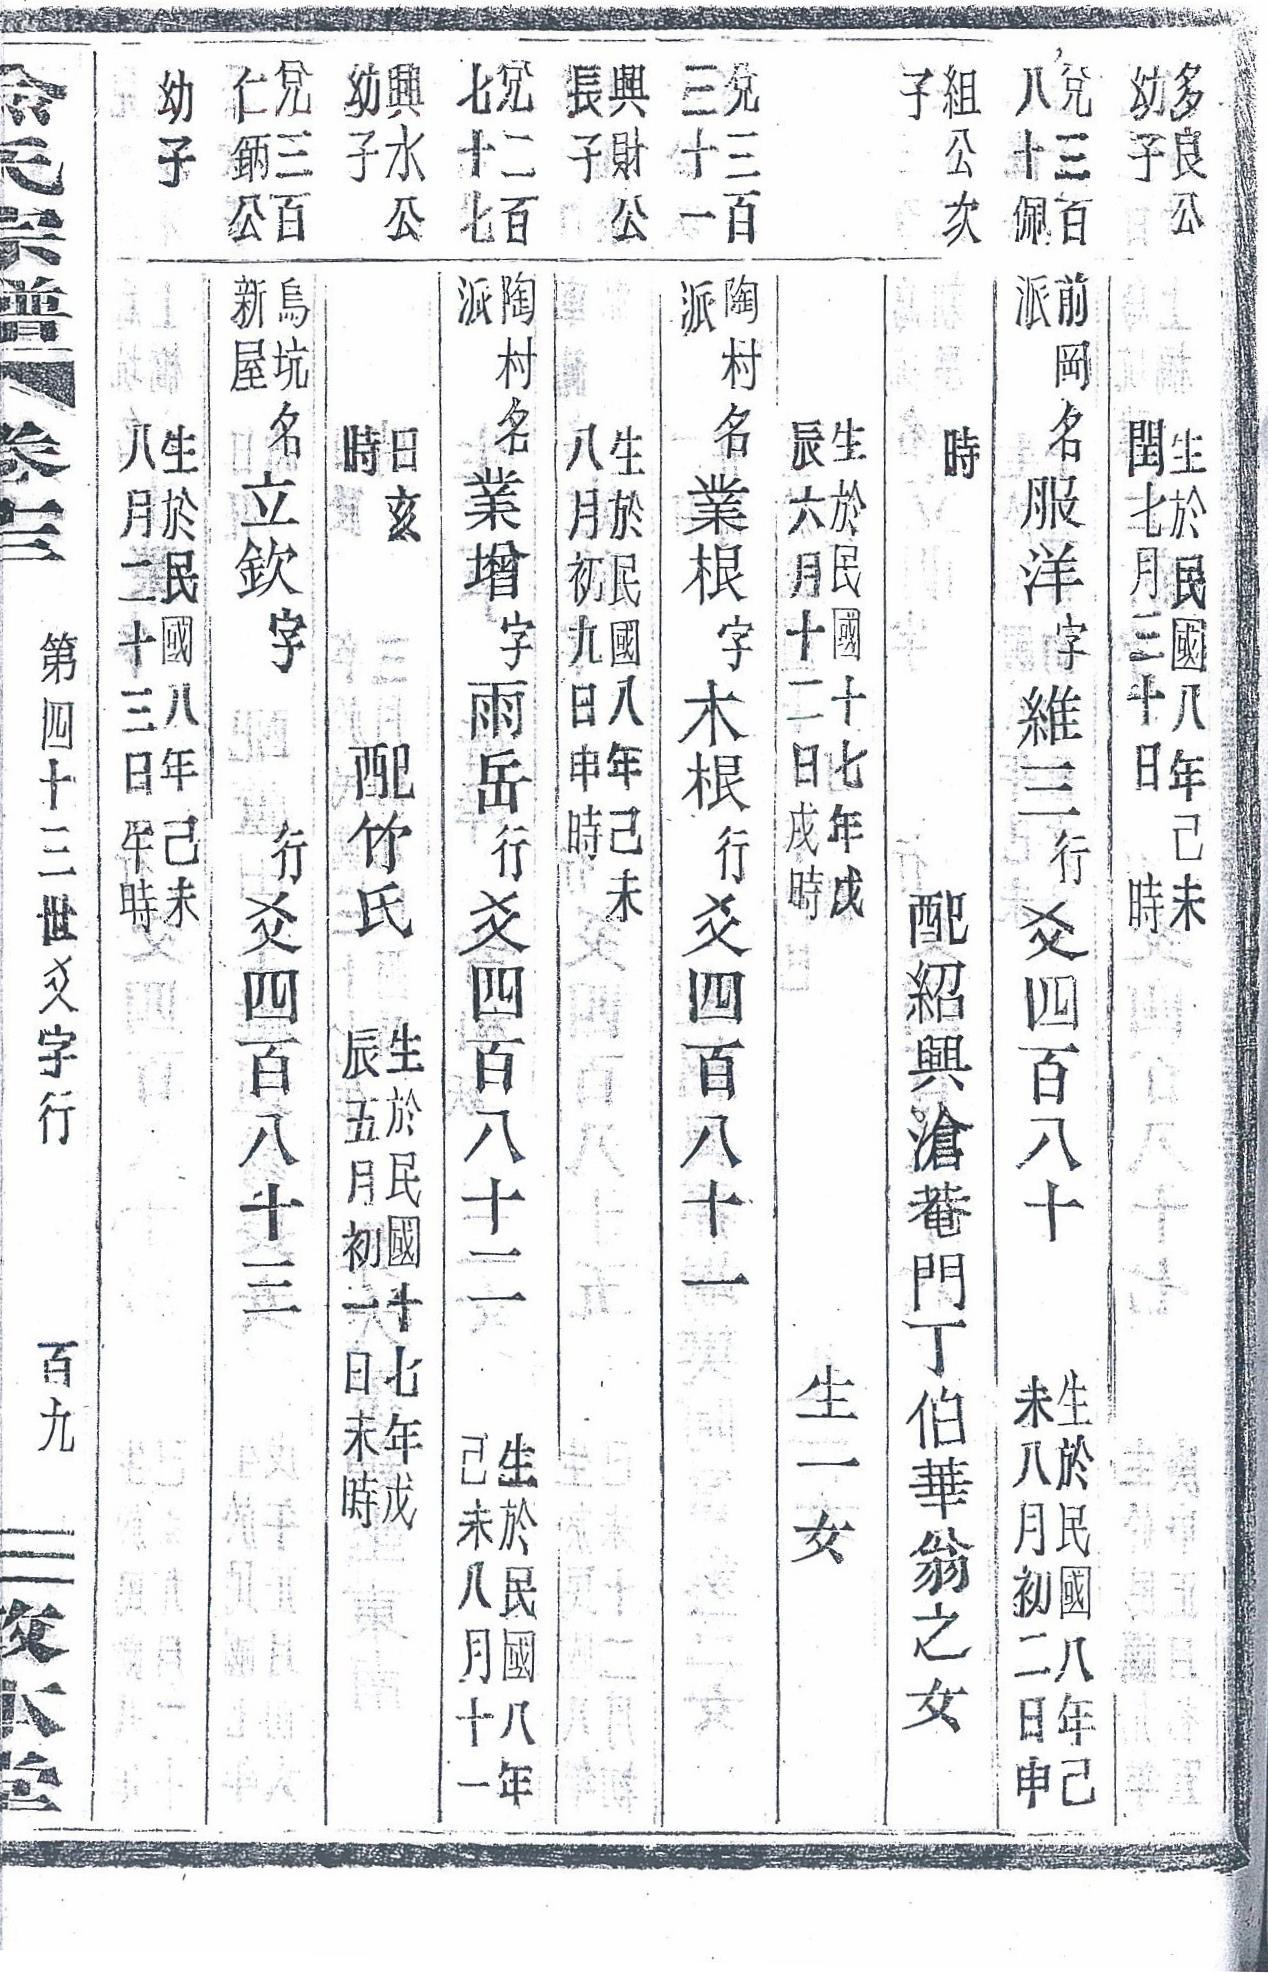 多良公
幼子
生於民國八年己未
閏七月三十日 時
兌三百
八十佩
前岡
派
名服洋字維三行爻四百八十
生於民國八年己
未八月初二日申
組公次
子
時
配紹興滄菴門丁伯華翁之女
生於民國十七年戊
辰六月十二日戌時
生一女
兌三百
三十一
陶村
派
名業根字木根行爻四百八十一
興財公
長子
生於民國八年己未
八月初九日申時
兌二百
七十七
陶村
派
名業增字雨岳行爻四百八十二
生於民國八年
己未八月十一
興水公
幼子
日亥
時
配竹氏
生於民國十七年戊
辰五月初一日未時
兌三百
仁鈵公
烏坑
新屋
名立欽字 行爻四百八十三
幼子
生於民國八年己未
八月二十三日午時
氏宗譜 卷三 第四十三世爻字行 百九 本堂